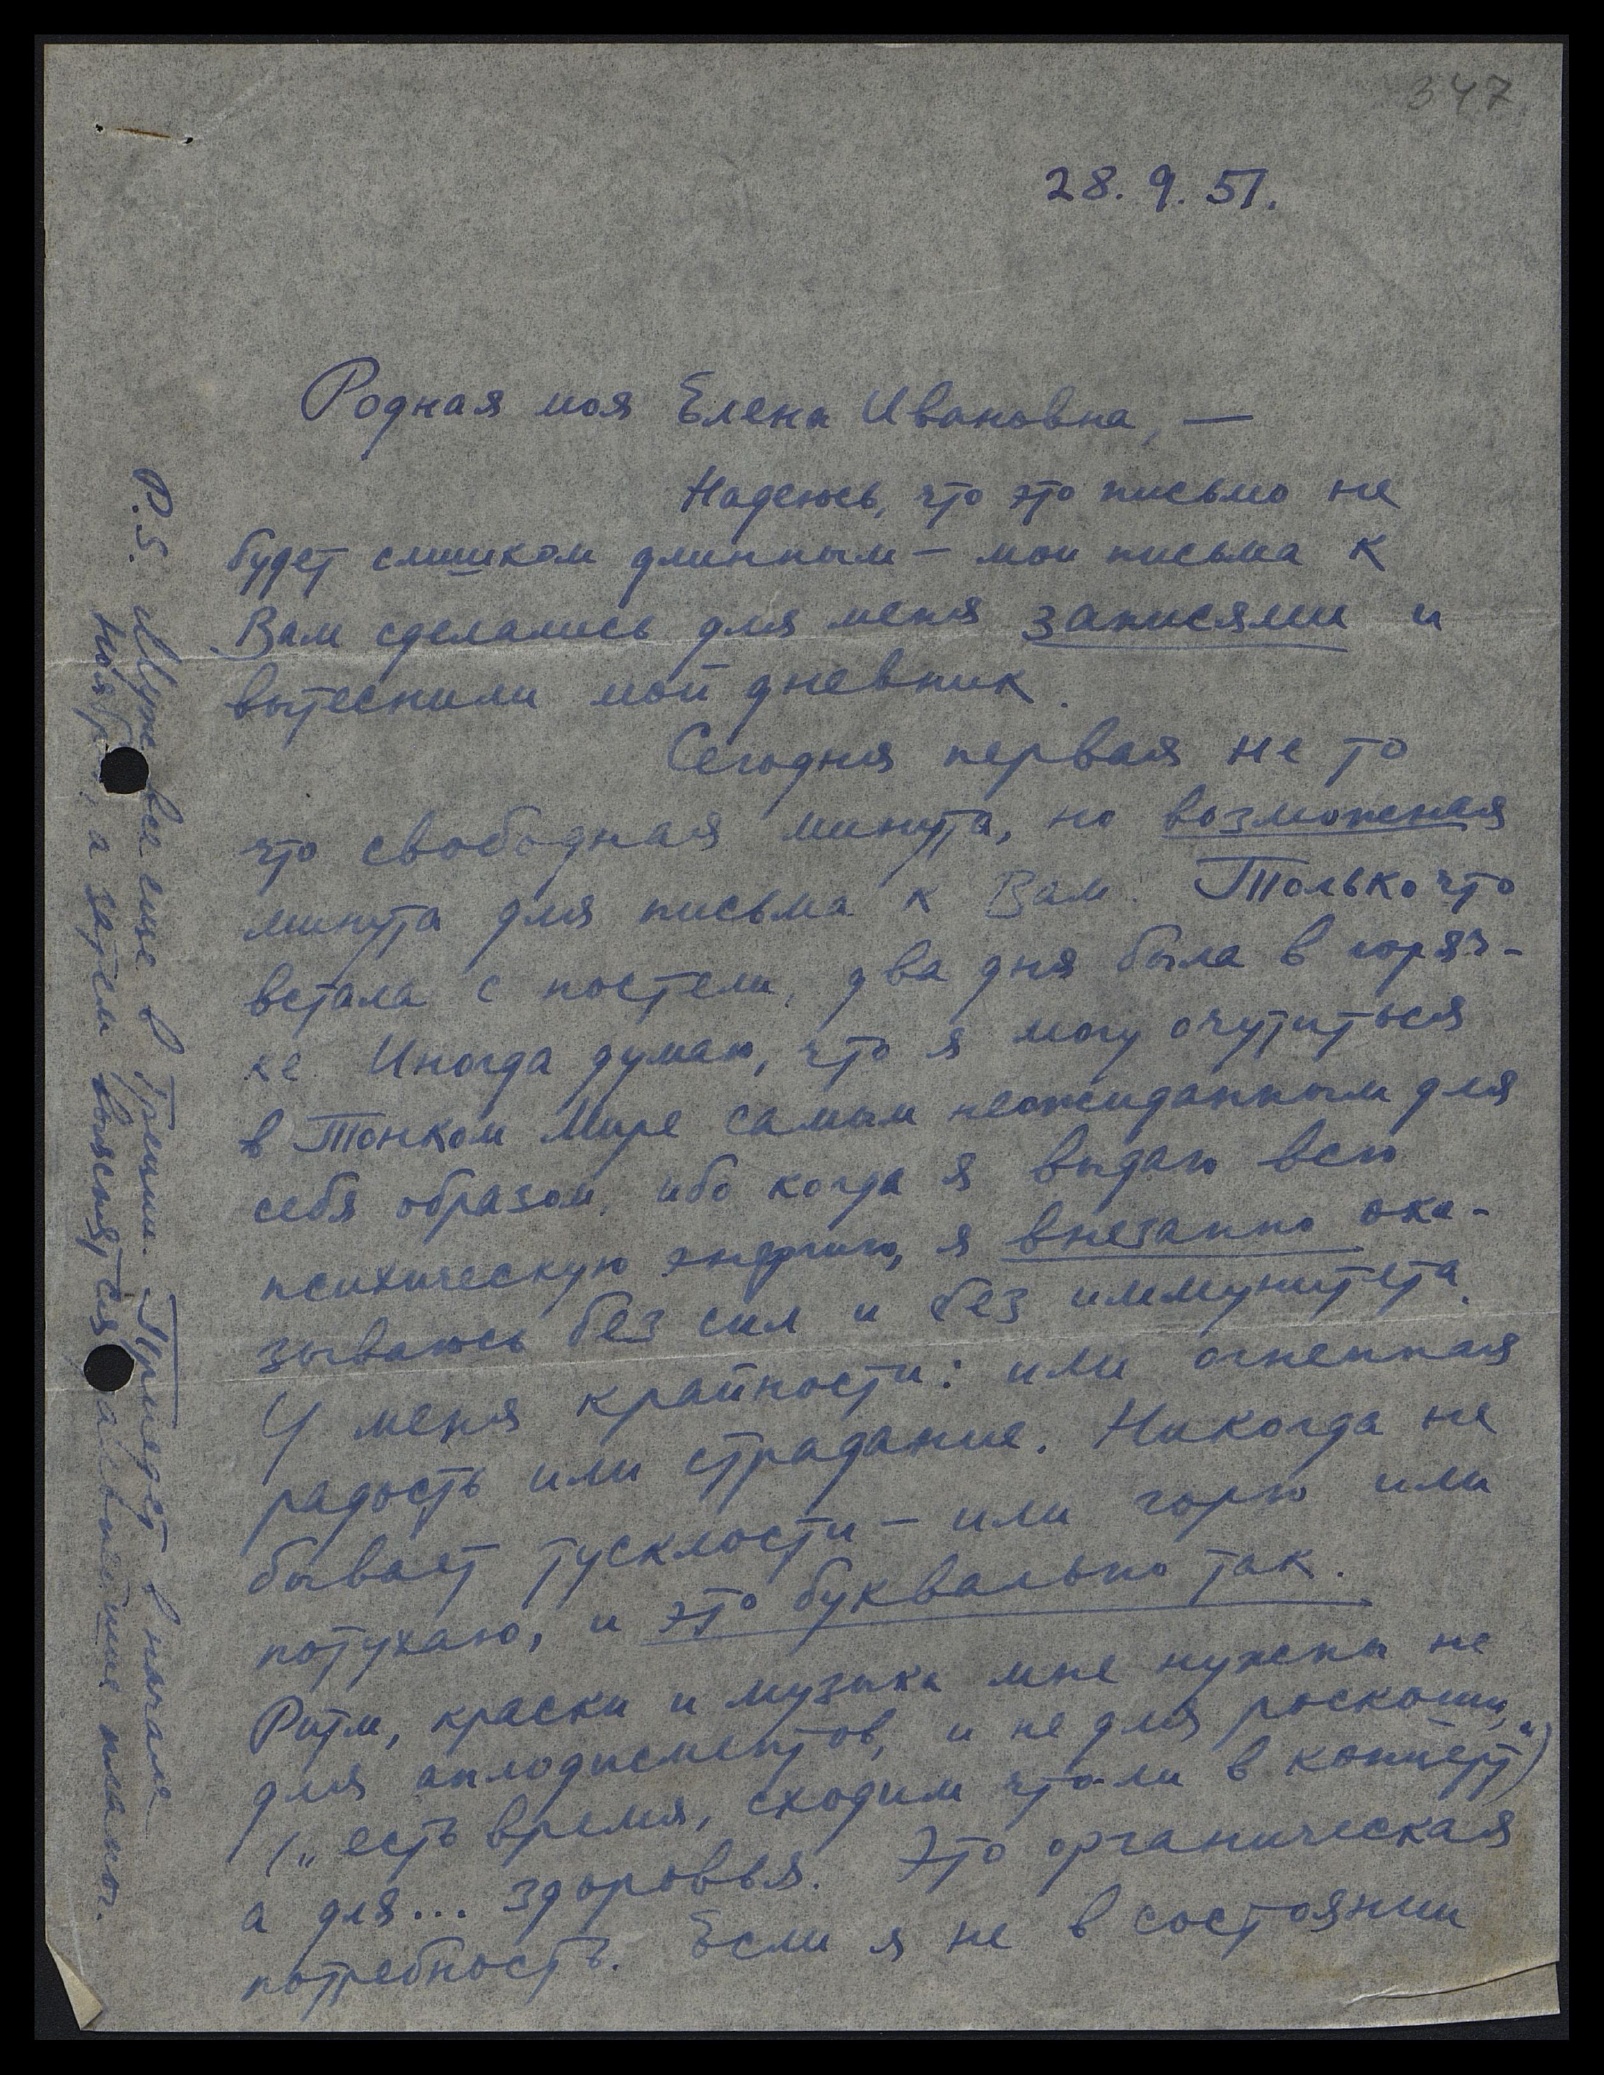 347
28. 9. 51.
Родная моя Елена Ивановна, —
Надеюсь, что это письмо не
будет слишком длинным — мои письма к
Вам сделались для меня записями и
вытеснили мой дневник.
Сегодня первая не то
что свободная минута, но возможная
минута для письма к Вам. Только что
встала с постели, два дня была в горяч-
ке. Иногда думаю, что я могу очутиться
в Тонком Мире самым неожиданным для
себя образом, ибо когда я выдаю всю
психическую энергию, я внезапно ока-
зываюсь без сил и без иммунитета.
У меня крайности: или огненная
радость или страдание. Никогда не
бывает тусклости — или горю или
потухаю, и это буквально так.
Ритм, краски и музыка мне нужны не
для аплодисментов, и не для роскоши,
(„есть время, сходим что-ли в концерт“)
а для... здоровья. Это органическая
потребность. Если я не в состоянии
P.S. Муж все еще в Греции. Приедет в начале
ноября, а затем выяснятся дальнейшие планы.